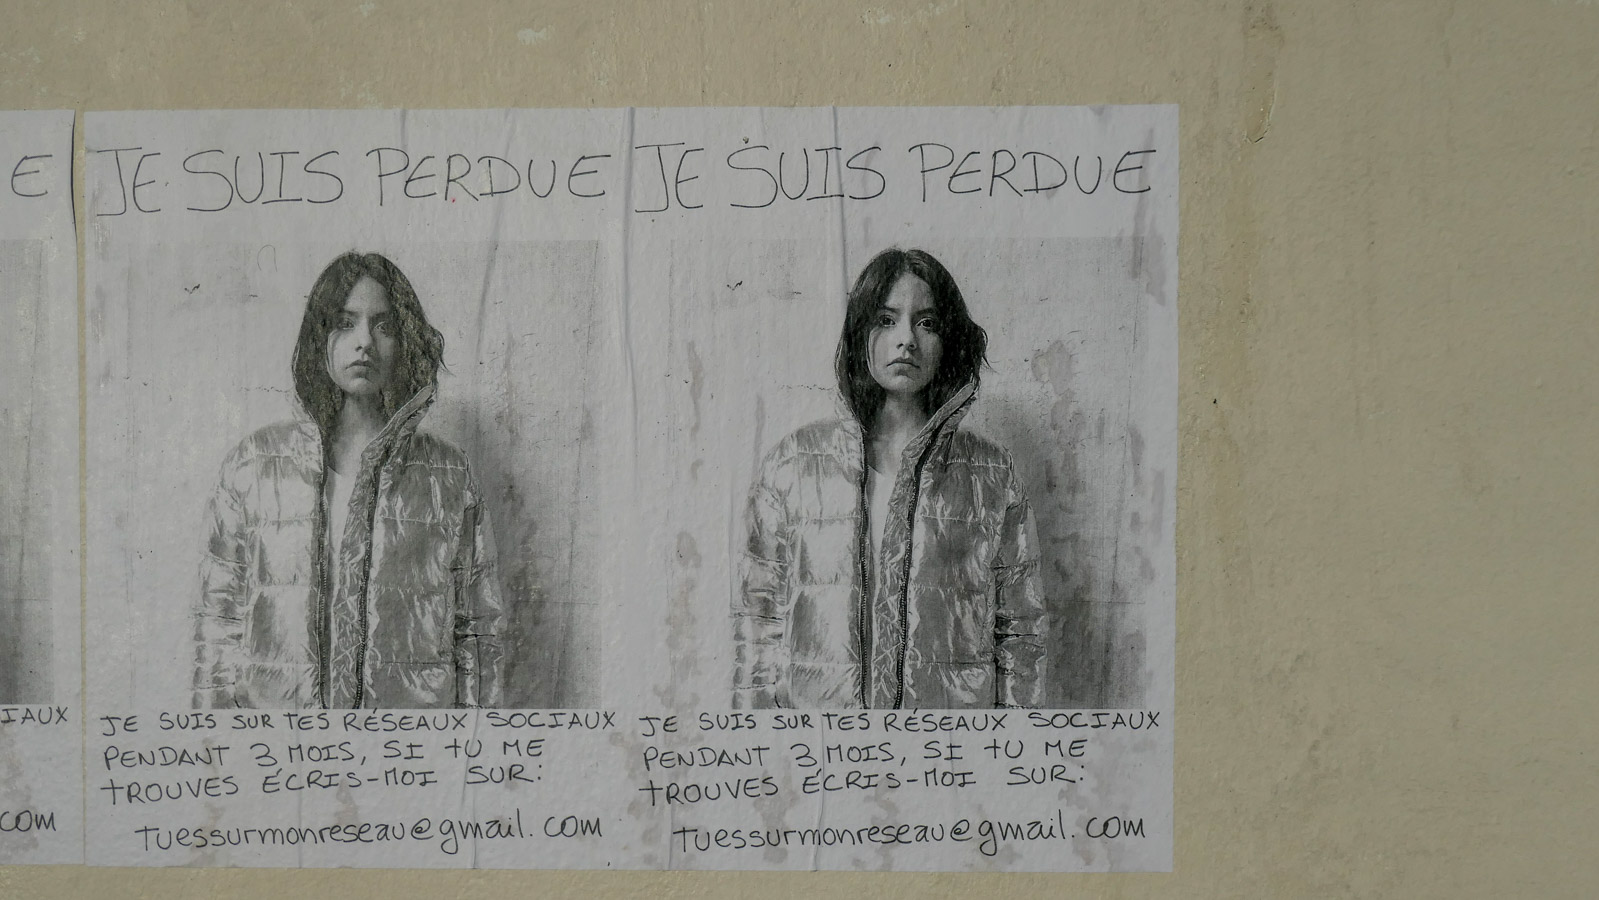 E
IAUX
COM
JE SUIS PERDUE
JE SUIS SUR TES RÉSEAUX SOCIAUX
PENDANT 3 MOIS, SI TU ME
TROUVES ÉCRIS-MOI SUR:
tuessurmonreseau@gmail.com
JE SUIS PERDUE
JE SUIS SUR TES RÉSEAUX SOCIAUX
PENDANT 3 MOIS, SI TU ME
TROUVES ÉCRIS-MOI SUR:
tuessurmonreseau@gmail.com